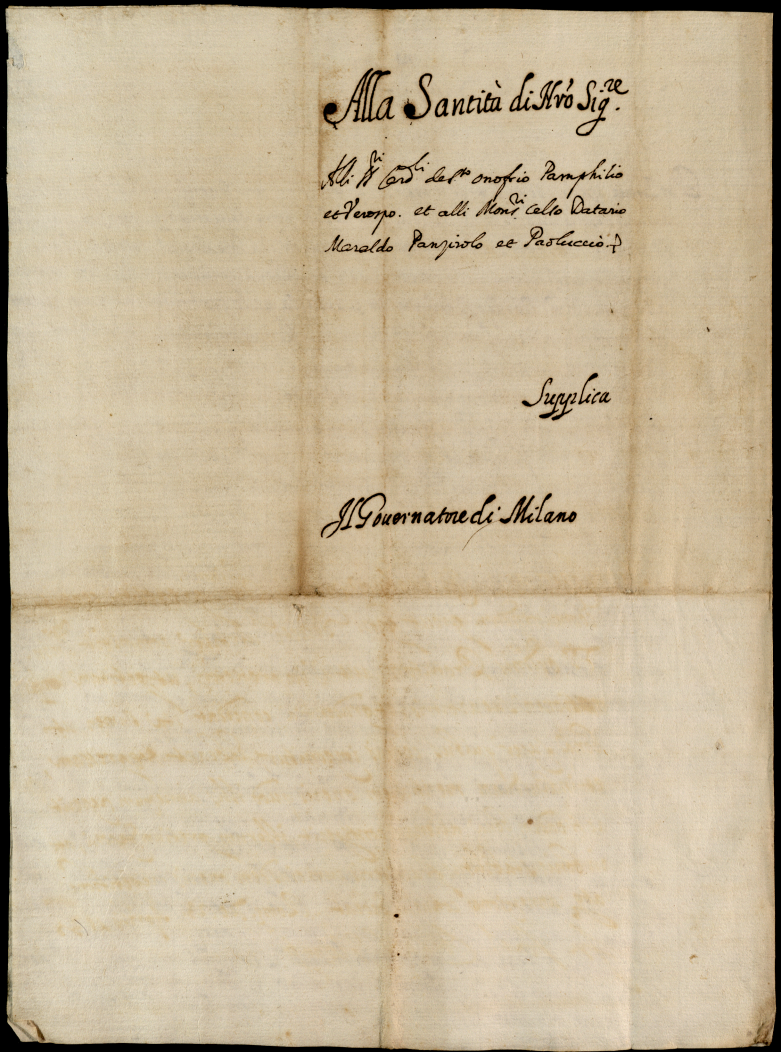 Alla Santità di Nrõ Sig.re
Alli SSri Cardli de Sto onofrio Pamphilio
et Verospo. et alli Monsri Celso Datario
Maraldo Panzirolo et Paoluccio.
Supplica
Il Governatore di Milano